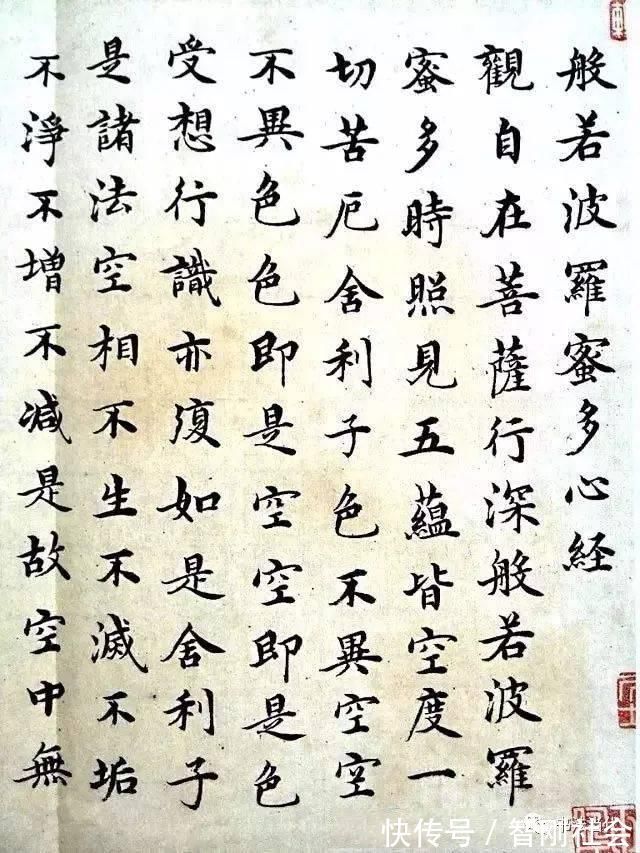 般若波羅蜜多心経
觀自在菩薩行深般若波羅
蜜多時照見五蘊皆空度一
切苦厄舍利子色不異空空
不異色色即是空空即是色
受想行識亦復如是舍利子
是諸法空相不生不滅不垢
不淨不増不減是故空中無
快传号／智刚社会